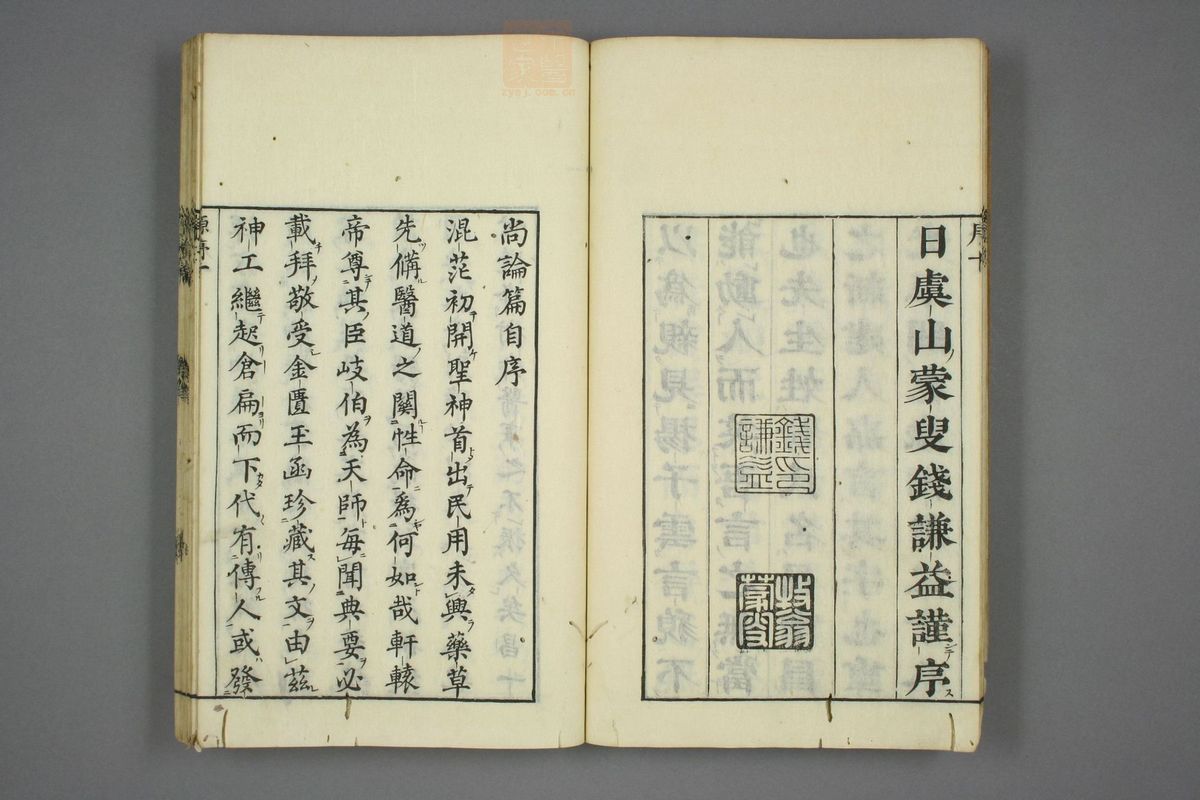 日虞山蒙叟錢謙益謹序
錢謙益印
牧翁蒙叟
尚論篇自序
混茫初開聖神首出民用未興藥草
先備醫道之關性命為何如哉軒轅
帝尊其臣岐伯為天師每聞典要必
載拜敬受金匱玉函珍藏其文由茲
神工繼起倉扁而下代有傳人或發